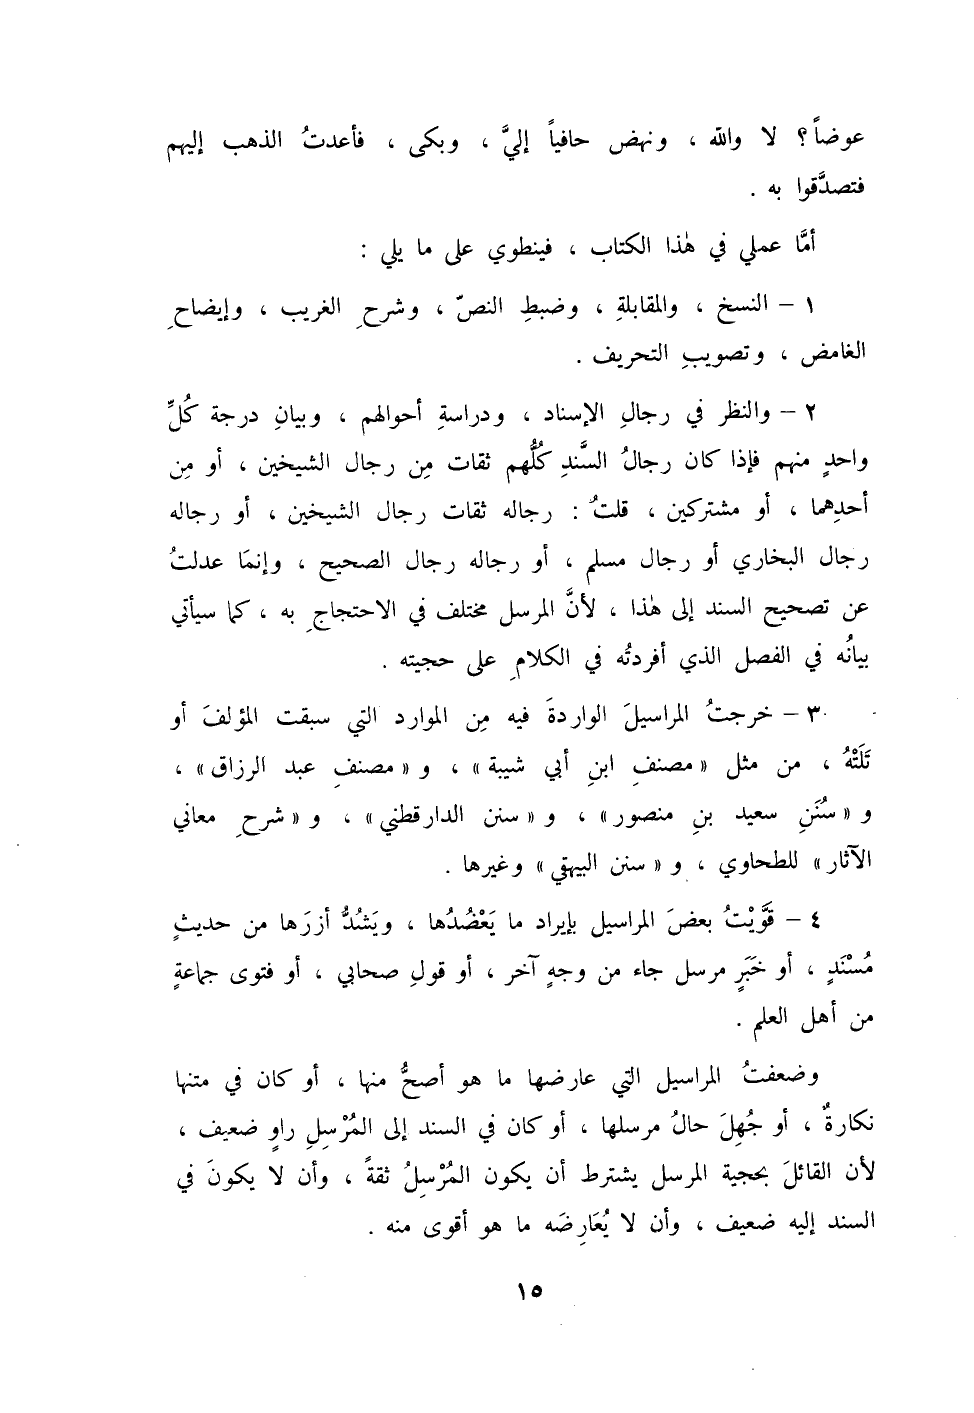 عوضاً؟ لا والله ، ونهض حافياً إليَّ ، وبكى ، فأعدتُ الذهب إليهم
فتصدَّقوا به .
أمَّا عملي في هٰذا الكتاب ، فينطوي على ما يلي :
١ – النسخ ، والمقابلةِ ، وضبطِ النصّ ، وشرحِ الغريب ، وإيضاحِ
الغامض ، وتصويبِ التحريف .
٢ – والنظر في رجالِ الإسناد ، ودراسةِ أحوالهم ، وبيانِ درجة كُلِّ
واحدٍ منهم فإذا كان رجالُ السَّندِ كُلُّهم ثقات مِن رجال الشيخين ، أو مِن
أحدِهما ، أو مشتركين ، قلتُ : رجاله ثقات رجال الشيخين ، أو رجاله
رجال البخاري أو رجال مسلم ، أو رجاله رجال الصحيح ، وإنمَا عدلتُ
عن تصحيح السند إلى هٰذا ، لأنَّ المرسل مختلف في الاحتجاجِ به ، كما سيأتي
بيانُه في الفصل الذي أفردتُه في الكلامِ على حجيته .
٣ – خرجتُ المراسيلَ الواردةَ فيه مِن الموارد التي سبقت المؤلفَ أو
تَلَتْهُ ، من مثل « مصنفِ ابنِ أبي شيبة » ، و « مصنفِ عبد الرزاق » ،
و « سُنَنِ سعيد بنِ منصور » ، و « سنن الدارقطني » ، و « شرحِ معاني
الآثار » للطحاوي ، و « سنن البيهقي » وغيرها .
٤ – قَوَّيْتُ بعضَ المراسيل بإيراد ما يَعْضُدُها ، ويَشُدُّ أزرَها من حديثٍ
مُسْنَدٍ ، أو خَبَرٍ مرسل جاء من وجهٍ آخر ، أو قولِ صحابي ، أو فتوى جماعةٍ
من أهل العلم .
وضعفتُ المراسيل التي عارضها ما هو أصحُّ منها ، أو كان في متنها
نكارةٌ ، أو جُهِلَ حالُ مرسلها ، أو كان في السند إلى المُرْسِلِ راوٍ ضعيف ،
لأن القائلَ بحجية المرسل يشترط أن يكون المُرْسِلُ ثقةً ، وأن لا يكونَ في
السند إليه ضعيف ، وأن لا يُعَارِضَه ما هو أقوى منه .
١٥